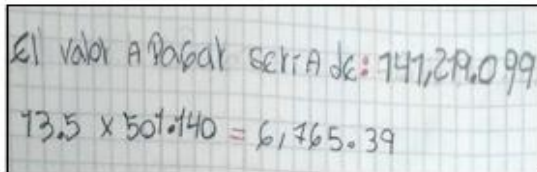 El valor A Pagar seriA de: 141,219.099
13.5 x 501.140 = 6,765.39